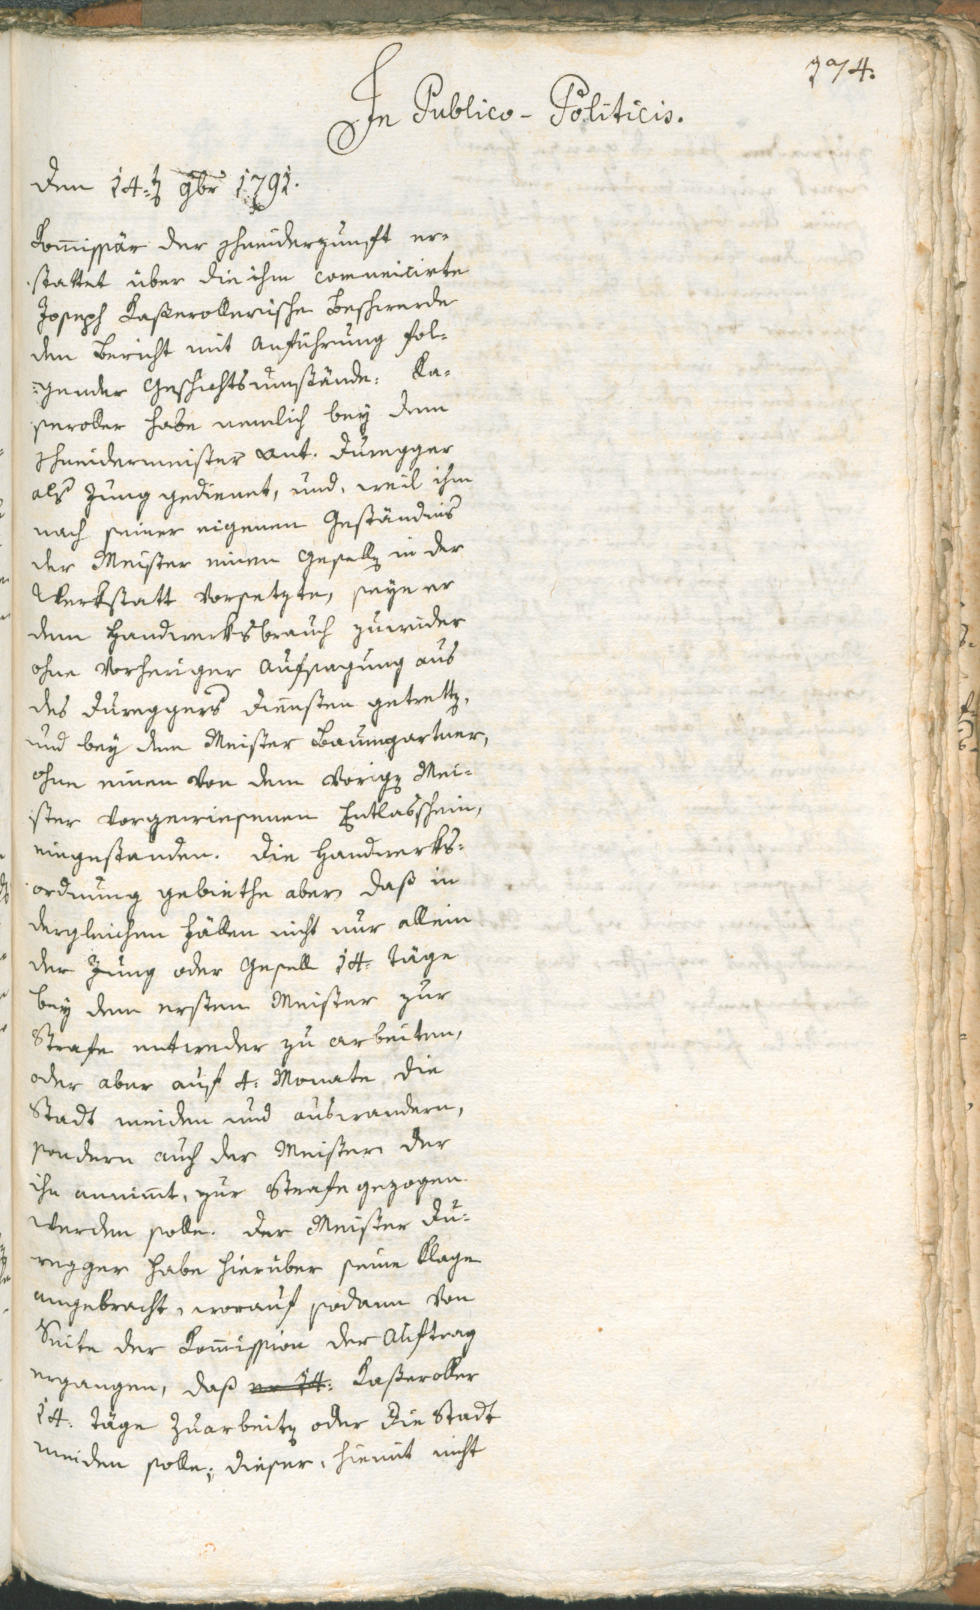 374.
In Publico-Politicis.
Den 14.t 9br 1791.
Kom̅issär der Schneiderzunft er=
stattet über die ihm com̅unicirte
Joseph Kaßerollerische Beschwerde
den Bericht mit Anführung fol=
=gender Geschichtsumstände: Ka=
seroller habe nemlich bey dem
Schneidermeister Ant. Duregger
als Jung gedienet, und, weil ihm
nach seiner eigenen Geständnis
der Meister einen Gesellen in der
Werkstatt vorsetzte, seye er
dem Handwerksbrauch zuwider
ohne vorheriger Aufsagung aus
des Dureggers Diensten getretten,
und bey dem Meister Baumgartner,
ohne einen von dem vorigen Mei=
ster vorgewiesenen Entlasschein,
eingestanden. Die Handwerks=
ordnung gebiethe aber, daß in
dergleichen Fällen nicht nur allein
der Jung oder Gesell 14. Täge
bey dem ersten Meister zur
Strafe entweder zu arbeiten,
oder aber auf 4. Monate die
Stadt meiden und auswandern,
sondern auch der Meister der
ihn annim̅t, zur Strafe gezogen
werden solle. Der Meister Du=
regger habe hierüber seine Klage
angebracht, worauf sodann von
Seite der Kom̅ission der Auftrag
ergangen, daß er 14. Kaßeroller
14. Täge zuarbeiten oder die Stadt
meiden solle; dieser, hiemit nicht